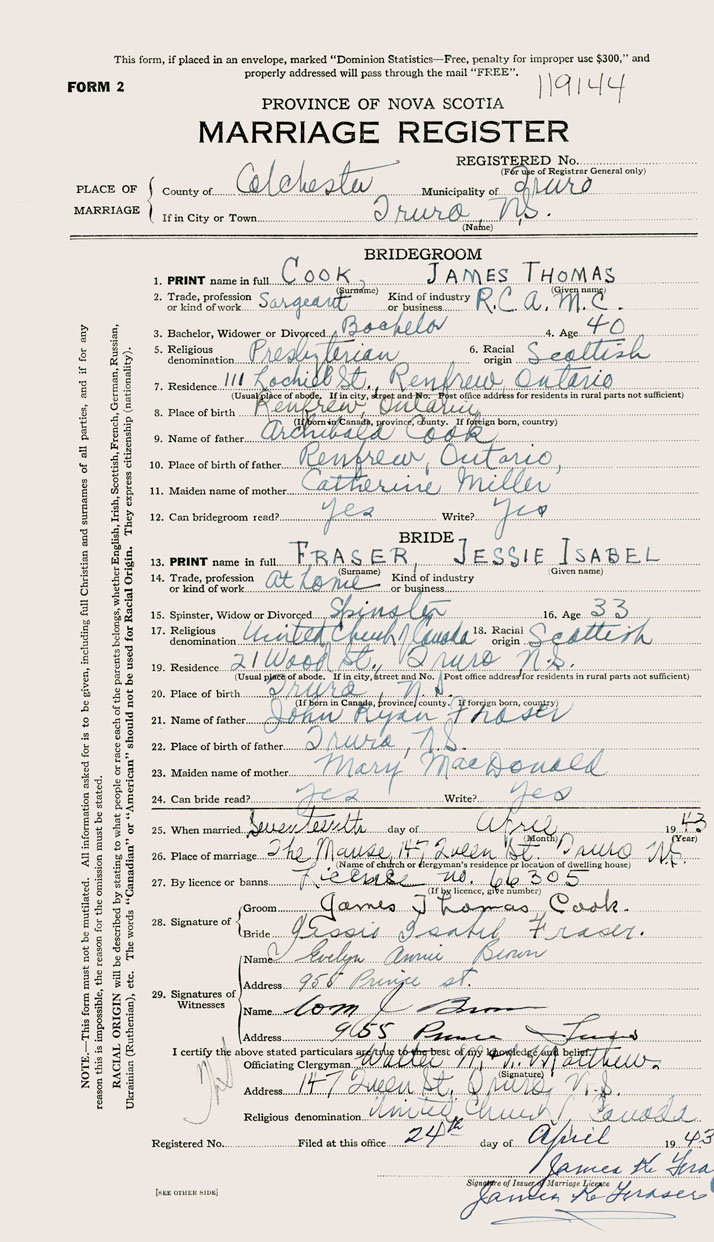 This form, if placed in an envelope, marked “Dominion Statistics—Free, penalty for improper use $300,” and
properly addressed will pass through the mail “FREE”.
FORM 2
119144
PROVINCE OF NOVA SCOTIA
MARRIAGE REGISTER
REGISTERED No.
(For use of Registrar General only)
PLACE OF MARRIAGE
County of Colchester Municipality of Truro
If in City or Town Truro, N.S.
(Name)
BRIDEGROOM
1. PRINT name in full COOK, JAMES THOMAS
(Surname) (Given name)
2. Trade, profession or kind of work Sargeant Kind of industry or business R.C.A.M.C.
3. Bachelor, Widower or Divorced Bachelor 4. Age 40
5. Religious denomination Presbyterian 6. Racial origin Scottish
7. Residence 111 Lochiel St., Renfrew Ontario
(Usual place of abode. If in city, street and No. Post office address for residents in rural parts not sufficient)
8. Place of birth Renfrew, Ontario
(If born in Canada, province, county. If foreign born, country)
9. Name of father Archibald Cook
10. Place of birth of father Renfrew, Ontario,
11. Maiden name of mother Catherine Miller
12. Can bridegroom read? yes Write? yes
BRIDE
13. PRINT name in full FRASER, JESSIE ISABEL
(Surname) (Given name)
14. Trade, profession or kind of work At home Kind of industry or business
15. Spinster, Widow or Divorced Spinster 16. Age 33
17. Religious denomination United Church Canada 18. Racial origin Scottish
19. Residence 21 Wood St., Truro N.S.
(Usual place of abode. If in city, street and No. Post office address for residents in rural parts not sufficient)
20. Place of birth Truro, N.S.
(If born in Canada, province, county. If foreign born, country)
21. Name of father John Ryan Fraser
22. Place of birth of father Truro, N.S.
23. Maiden name of mother Mary MacDonald
24. Can bride read? yes Write? yes
25. When married Seventeenth day of April 1943
(Month) (Year)
26. Place of marriage The Manse, 147 Queen St. Truro N.S.
(Name of church or clergyman's residence or location of dwelling house)
27. By licence or banns Licence no. 66305
(If by licence, give number)
28. Signature of
Groom James Thomas Cook.
Bride Jessie Isabel Fraser.
29. Signatures of Witnesses
Name Evelyn Annie Brown
Address 955 Prince st.
Name Tom J Brown
Address 955 Prince Truro
I certify the above stated particulars are true to the best of my knowledge and belief.
Officiating Clergyman Walter N. Matthews.
(Signature)
Address 147 Queen St., Truro, N.S.
Religious denomination United Church Canada
Registered No. Filed at this office 24th day of April 1943
James K Fra
Signature of Issuer of Marriage Licence
James K Fraser
[SEE OTHER SIDE]
NOTE.—This form must not be mutilated. All information asked for is to be given, including full Christian and surnames of all parties, and if for any
reason this is impossible, the reason for the omission must be stated.
RACIAL ORIGIN will be described by stating to what people or race each of the parents belongs, whether English, Irish, Scottish, French, German, Russian,
Ukrainian (Ruthenian), etc. The words “Canadian” or “American” should not be used for Racial Origin. They express citizenship (nationality).